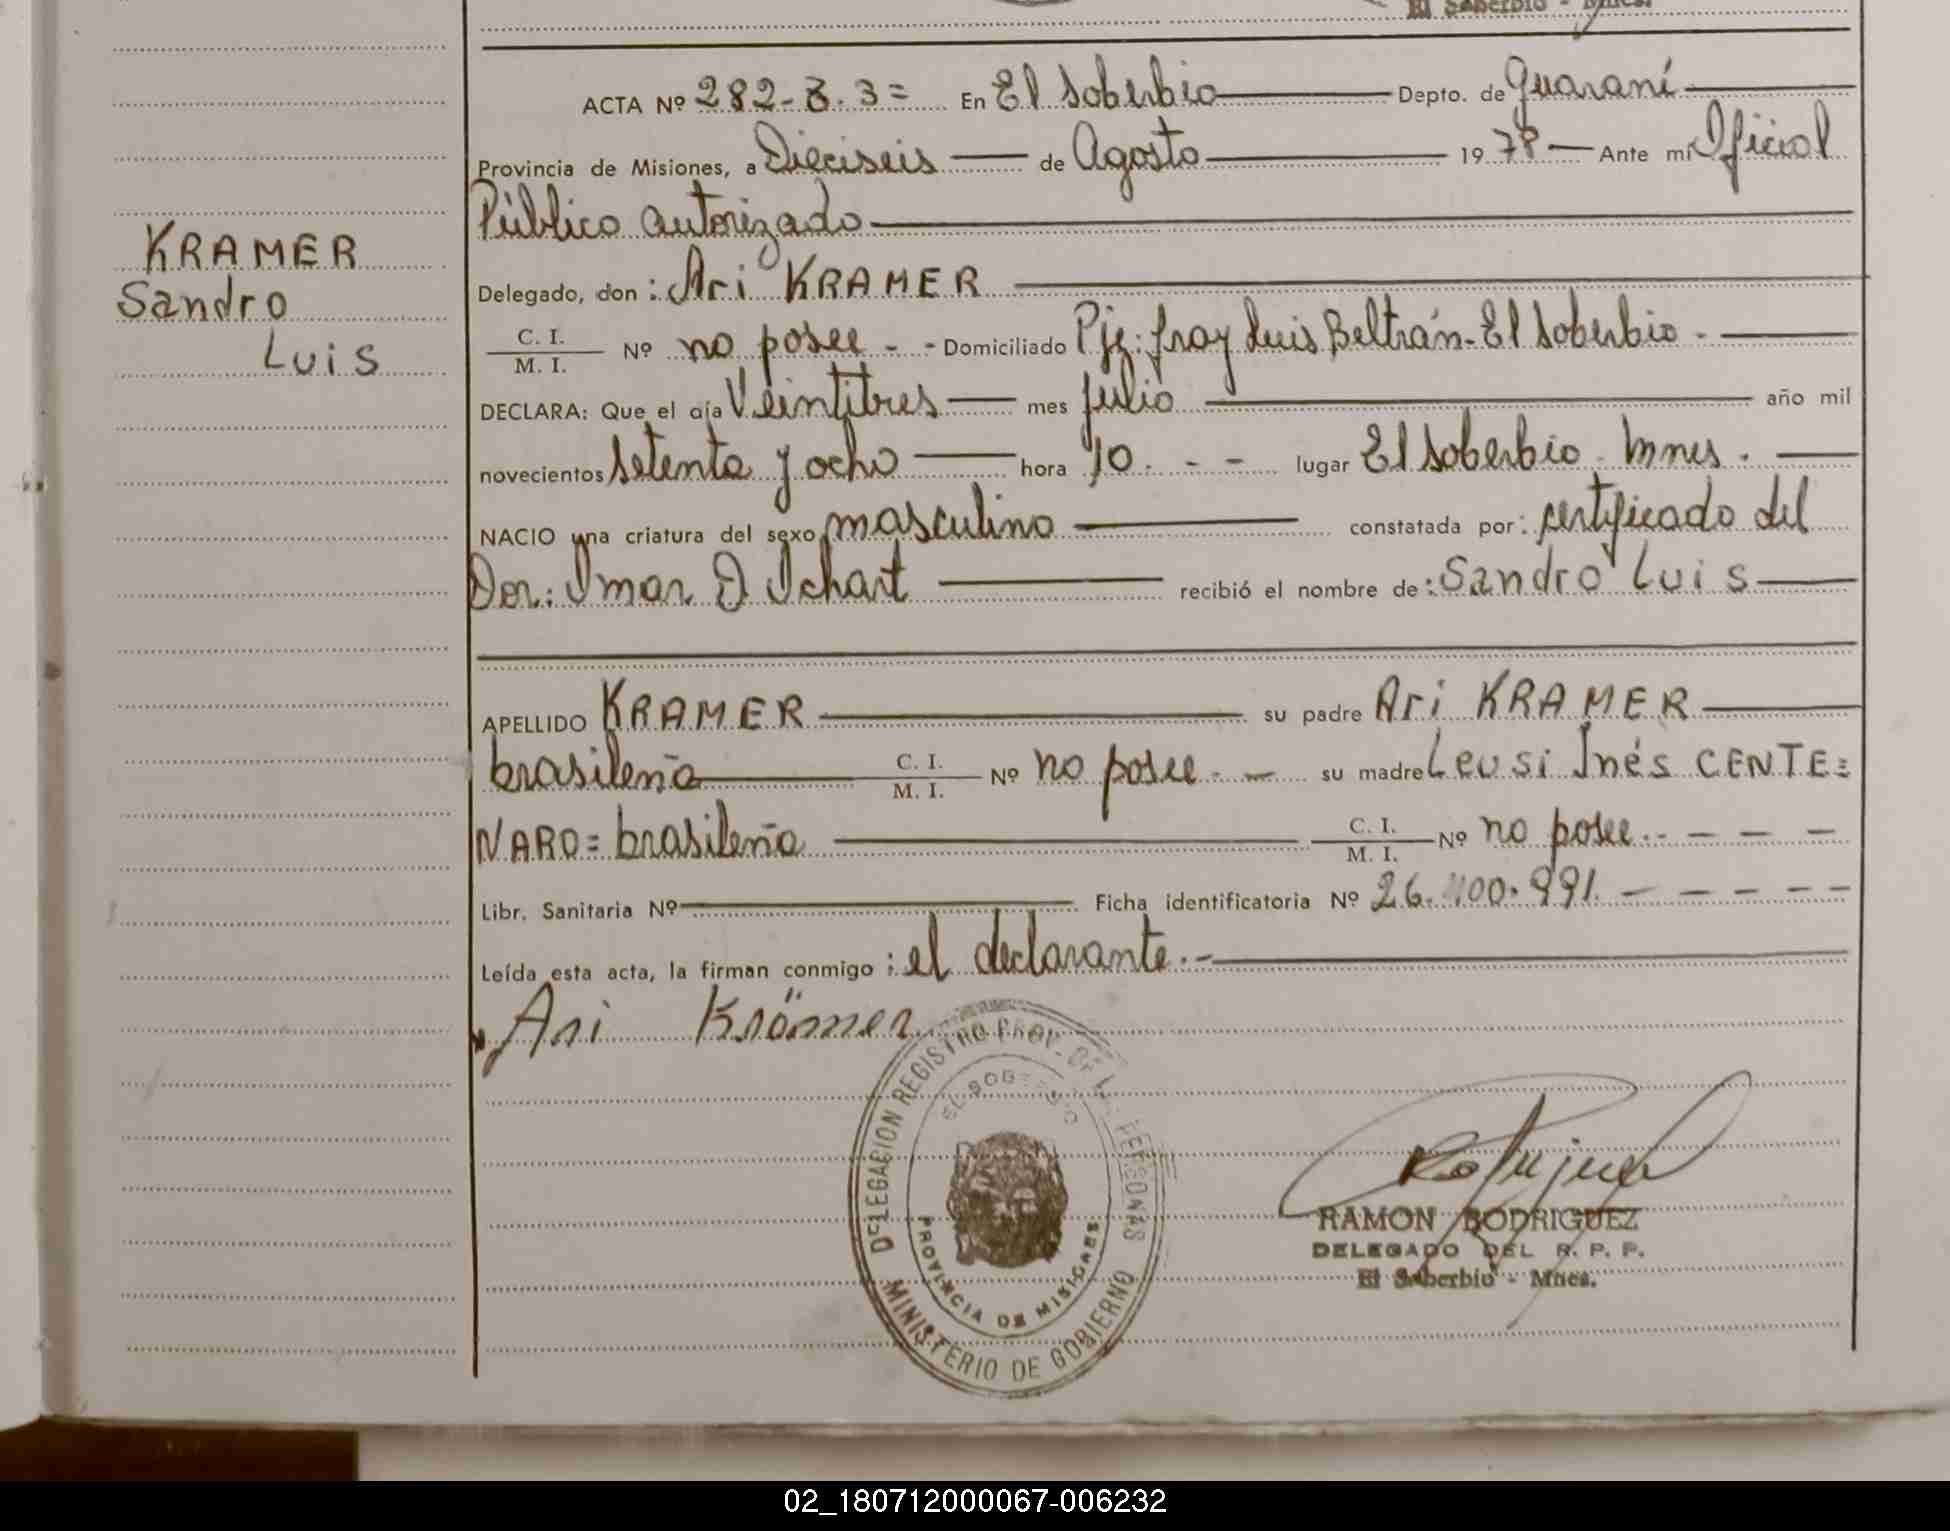 El Soberbio - Mnes.
ACTA Nº 282-3.3= En El Soberbio Depto. de Guaraní
Provincia de Misiones, a Dieciseis de Agosto 1978 Ante mí Oficial
Público autorizado
KRAMER
Sandro
Luis
Delegado, don: Ari KRAMER
C. I.
M. I. Nº no posee - - Domiciliado Pje: fray Luis Beltrán-El Soberbio -
DECLARA: Que el día Veintitres mes julio año mil
novecientos setenta y ocho hora 10. - - lugar El Soberbio. Mnes.
NACIO una criatura del sexo masculino constatada por: certificado del
Dor: Omar D Ichart recibió el nombre de: Sandro Luis
APELLIDO KRAMER su padre Ari KRAMER
brasileña C. I.
M. I. Nº no posee. - su madre Leusi Inés CENTE=
NARO= brasileña C. I.
M. I. Nº no posee.- - - -
Libr. Sanitaria Nº Ficha identificatoria Nº 26.400.991. - - - - -
Leída esta acta, la firman conmigo: el declarante.-
Ari Krämer
DELEGACION REGISTRO PROV. DE L. PERSONAS
EL SOBERBIO
PROVINCIA DE MISIONES
MINISTERIO DE GOBIERNO
RAMON RODRIGUEZ
DELEGADO DEL R. P. P.
El Soberbio - Mnes.
02_180712000067-006232